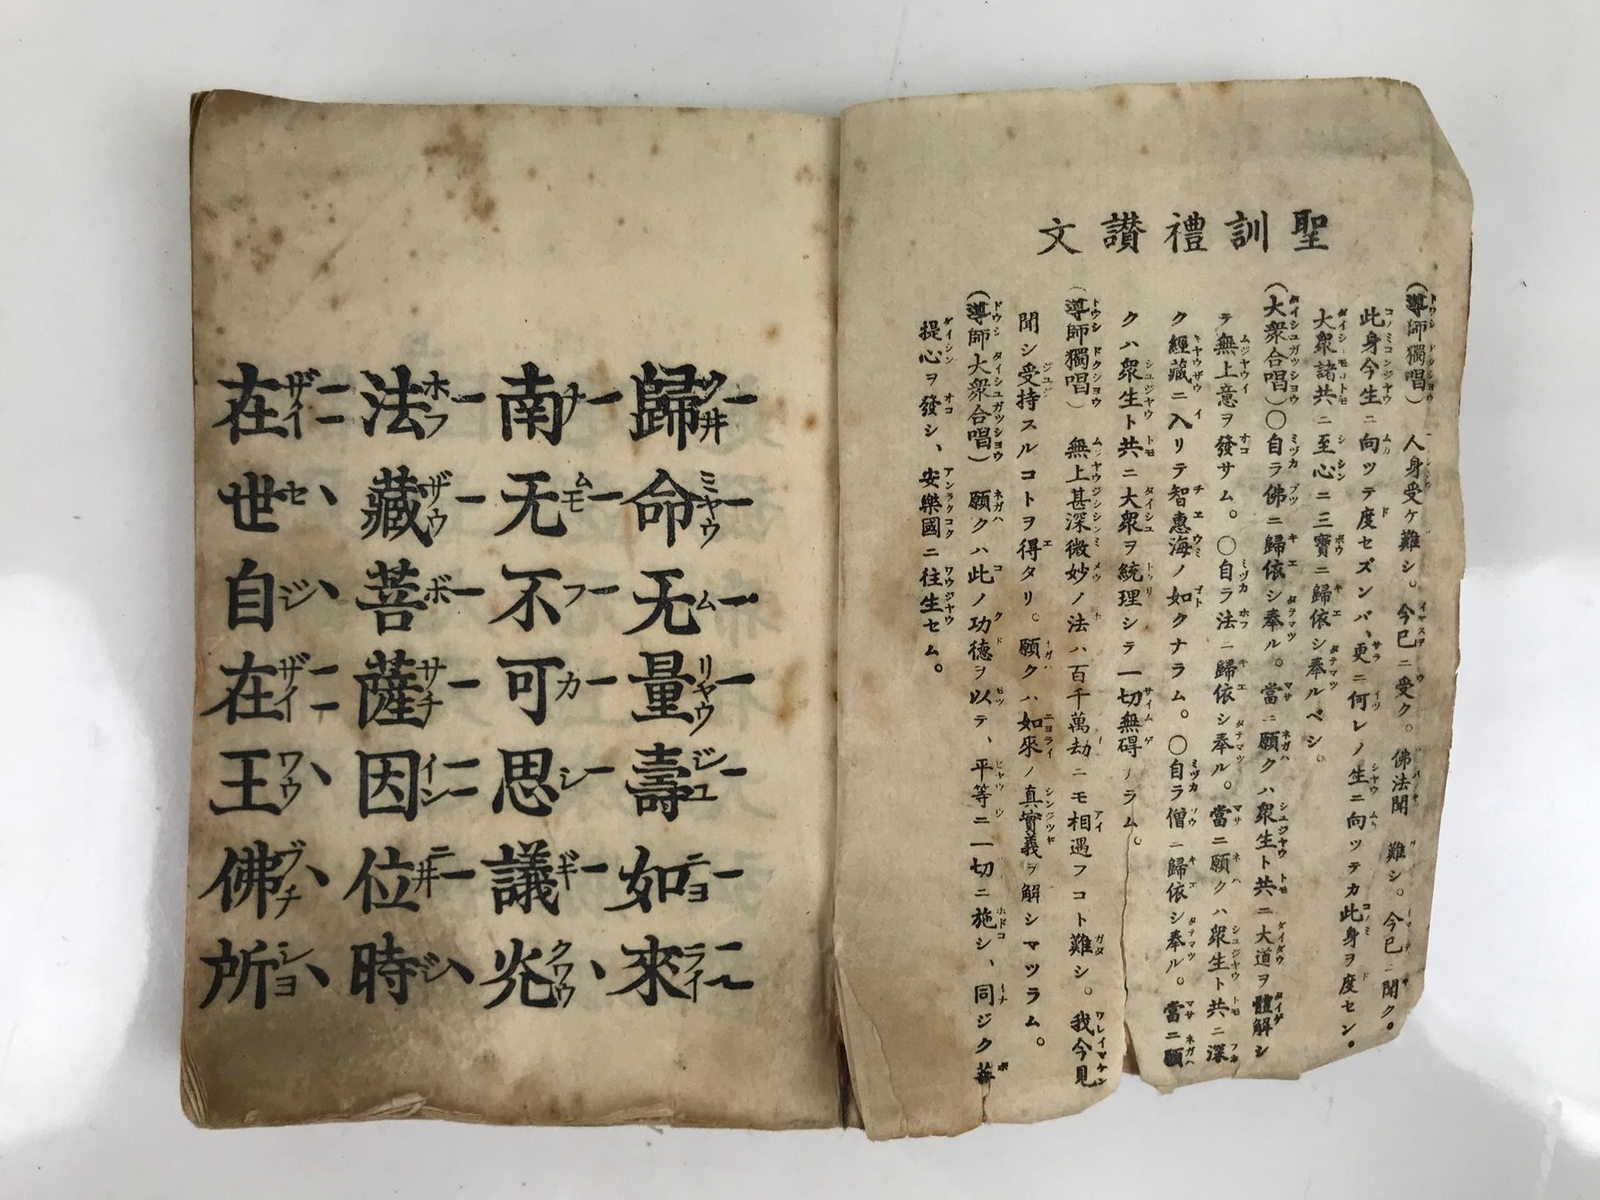 聖訓禮讃文
(導師獨唱)人身受ケ難シ。今已ニ受ク。佛法聞 難シ。今已ニ聞ク。
此身今生ニ向ツテ度セズンバ、更ニ何レノ生ニ向ツテカ此身ヲ度セン。
大衆諸共ニ至心ニ三寶ニ歸依シ奉ルベシ。
(大衆合唱)〇自ラ佛ニ歸依シ奉ル。當ニ願クハ衆生ト共ニ大道ヲ體解シ
テ無上意ヲ發サム。〇自ラ法ニ歸依シ奉ル。當ニ願クハ衆生ト共ニ深
ク經藏ニ入リテ智惠海ノ如クナラム。〇自ラ僧ニ歸依シ奉ル。當ニ願
クハ衆生ト共ニ大衆ヲ統理シテ一切無碍ナラム。
(導師獨唱)無上甚深微妙ノ法ハ百千萬劫ニモ相遇フコト難シ。我今見
聞シ受持スルコトヲ得タリ。願クハ如來ノ真實義ヲ解シマツラム。
(導師大衆合唱)願クハ此ノ功德ヲ以テ、平等ニ一切ニ施シ、同ジク菩
提心ヲ發シ、安樂國ニ往生セム。
歸命无量壽如來
南无不可思議光
法藏菩薩因位時
在世自在王佛所